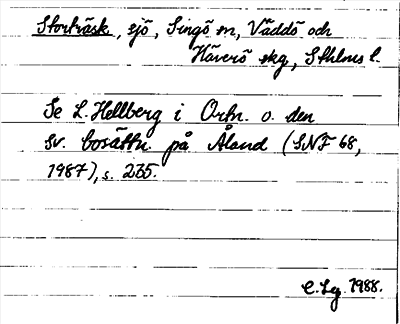 Storträsk, sjö, Singö sn, Väddö och
Häverö skg, Sthlms l.
Se L. Hellberg i Ortn. o. den
sv. bosättn. på Åland (SNF 68,
1987), s. 235.
C. Lg. 1988.